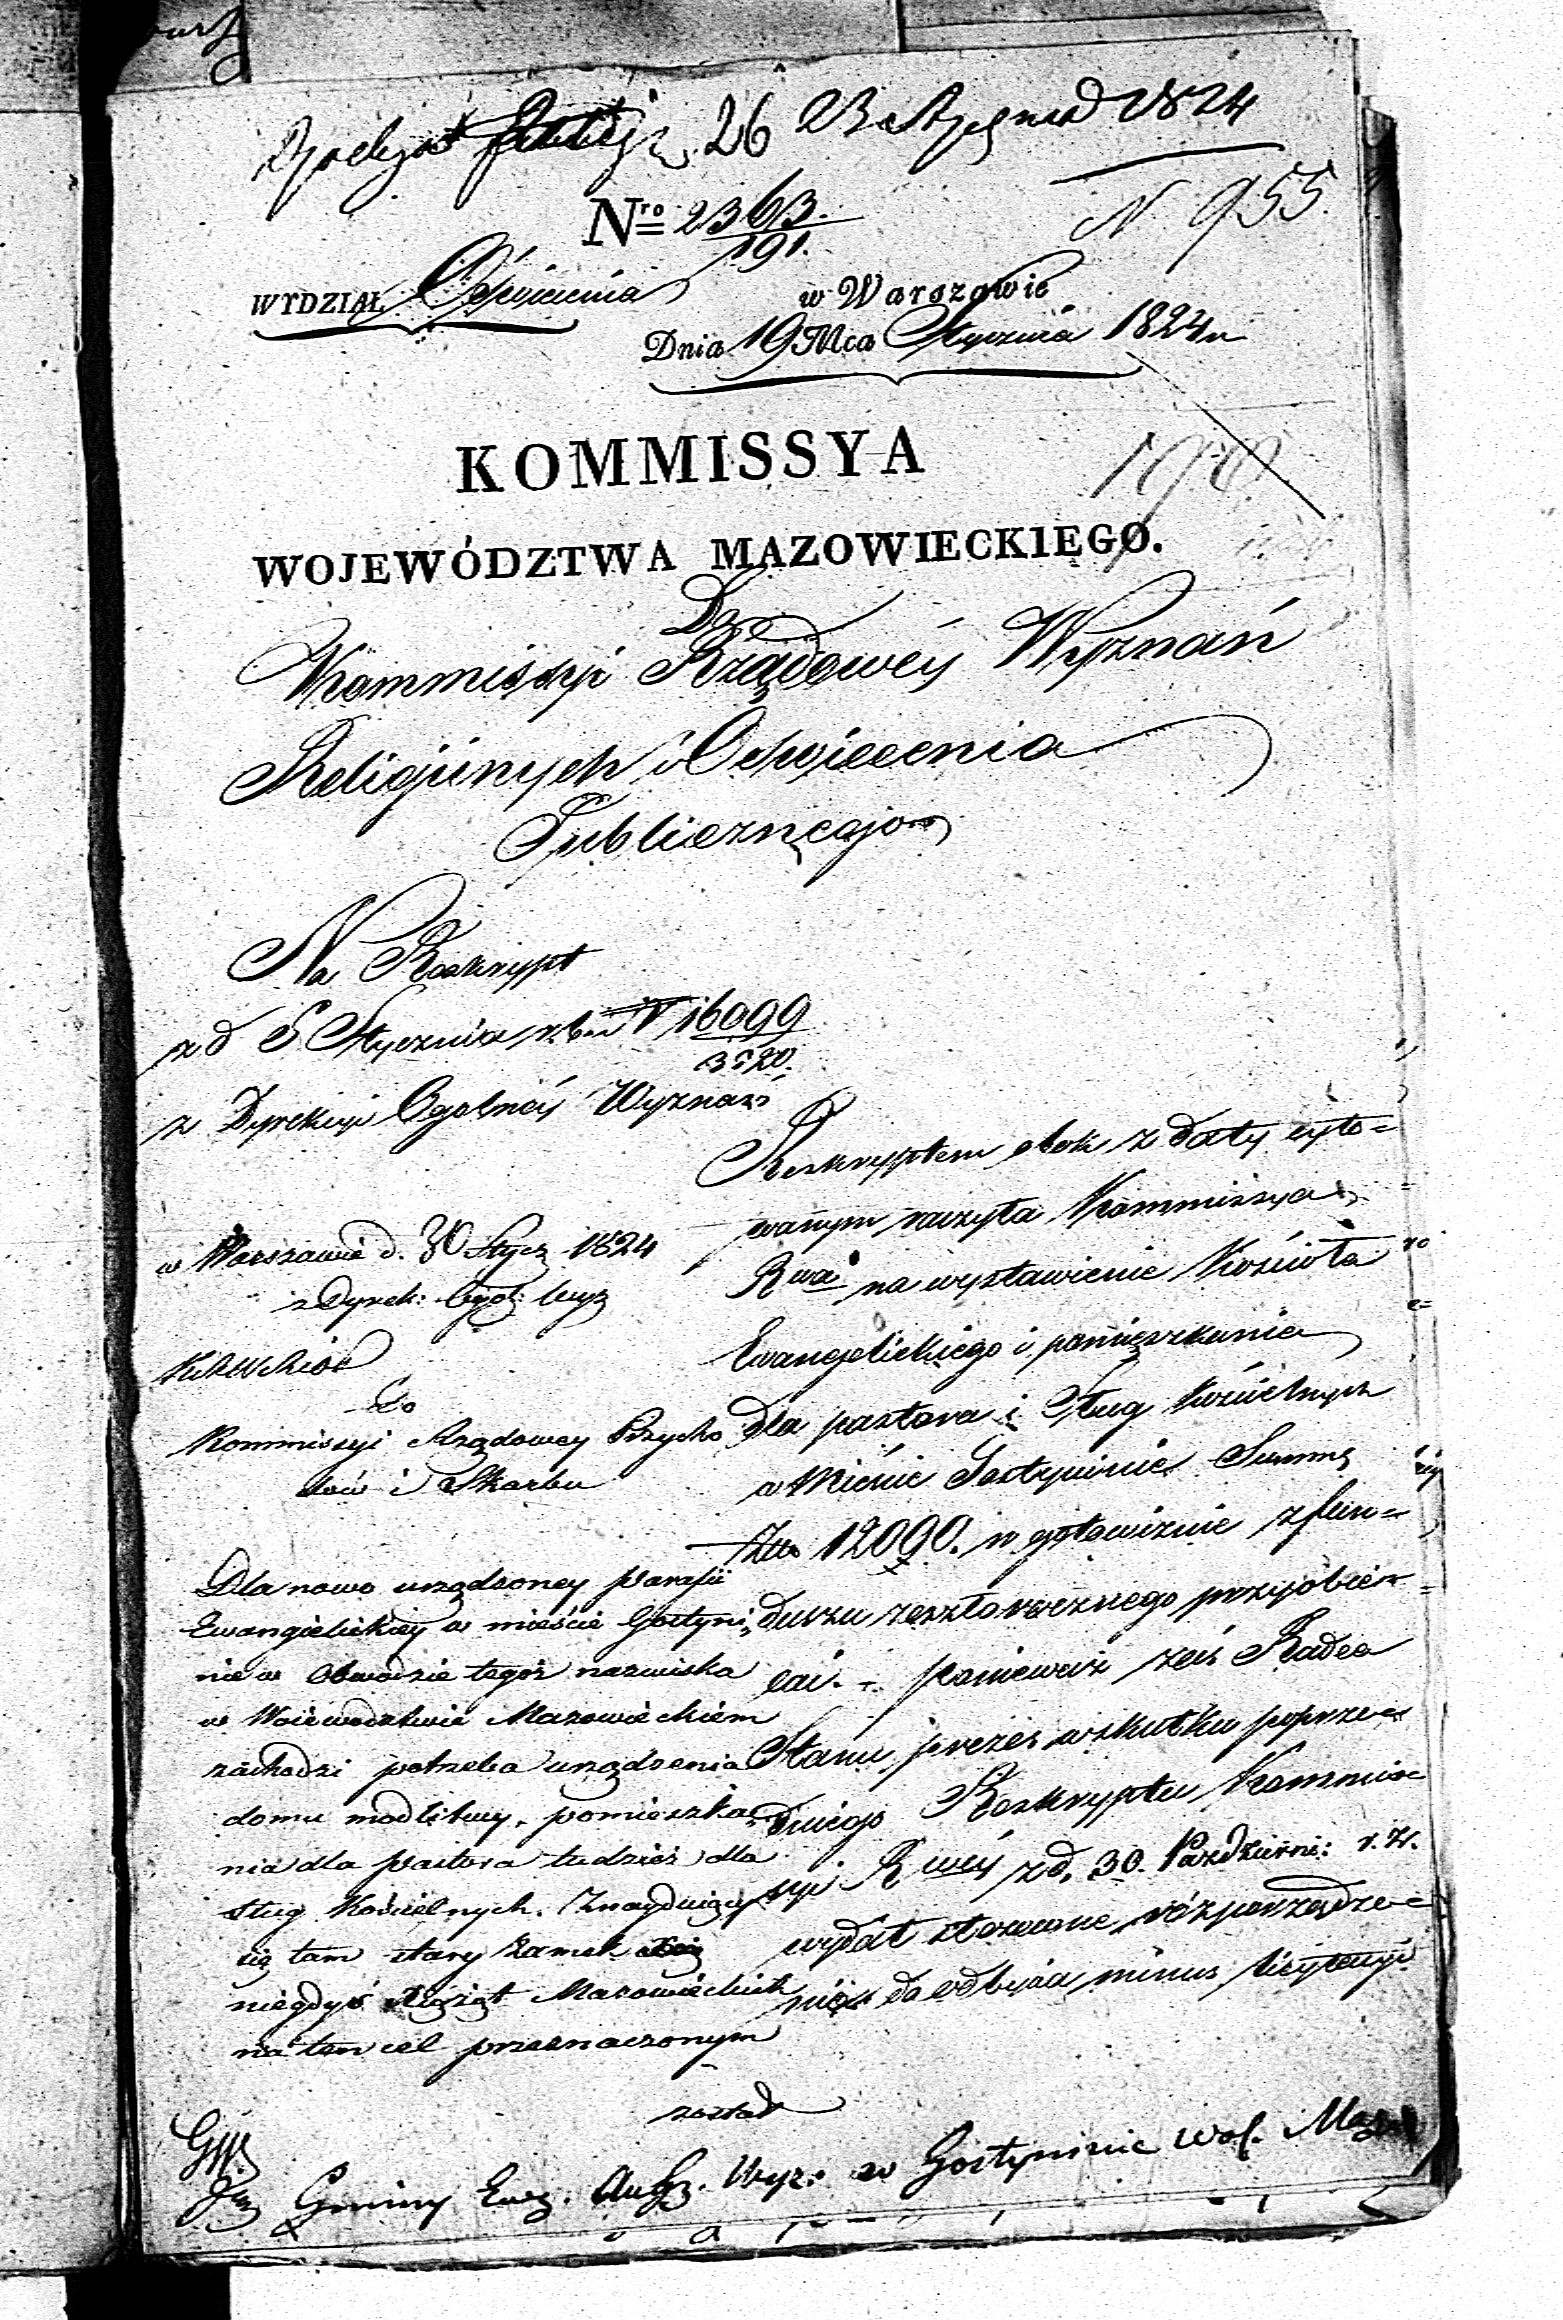 26 23 Stycznia 1824
N 955.
Nro 2363.
191.
WYDZIAŁ Oświecenia
w Warszawie
Dnia 19 Mca Stycznia 1824 r
190
KOMMISSYA
WOJEWÓDZTWA MAZOWIECKIEGO.
Do
Kommissyi Rządowéy Wyznań
Religijnych i Oświecenia
Publicznego
Na Reskrypt
z d 5 Stycznia r. b. N 16099
3520.
z Dyrekcyi Ogolnéy Wyznań
Reskryptem obok z daty cyto=
wanym raczyła Kommissya
Rwa na wystawienie Kościoła
Ewangelickiego i pomieszkania
dla pastora i Sług Kościelnych
w Mieście Gostyninie Summę
Złł 12090. w gotowiznie z fun=
duszu zeszłorocznego przyobie=
cać. - ponieważ zaś Radca
Stanu prezes wskutku poprze=
dniego Reskryptu Kommis=
syi Rwéy z d. 30. Październi: r. z.
wydał stosowne rózporządze=
nie do odbycia minus licytacyi
w Warszawie d. 30 Stycz 1824
z Dyrek: Ogól: Wyz
Do
Kommissyi Rządowey Przycho
dów i Skarbu
Dla nowo urządzoney parafii
Ewangielickiey w mieście Gostyni„
nie w Obwodzie tegoż nazwiska
w Woiewództwie Mazowieckiem
zachodzi potrzeba urządzenia
domu modlitwy, pomieszka„
nia dla pastora tudzież dla
sług Kościelnych. Znayduiący
się tam stary Zamek
niegdyś Xiążąt Mazowieckich
na ten cel przeznaczonym
został
Gminy Ewg. Augsz. Wyz: w Gostyninie Woj. Maz